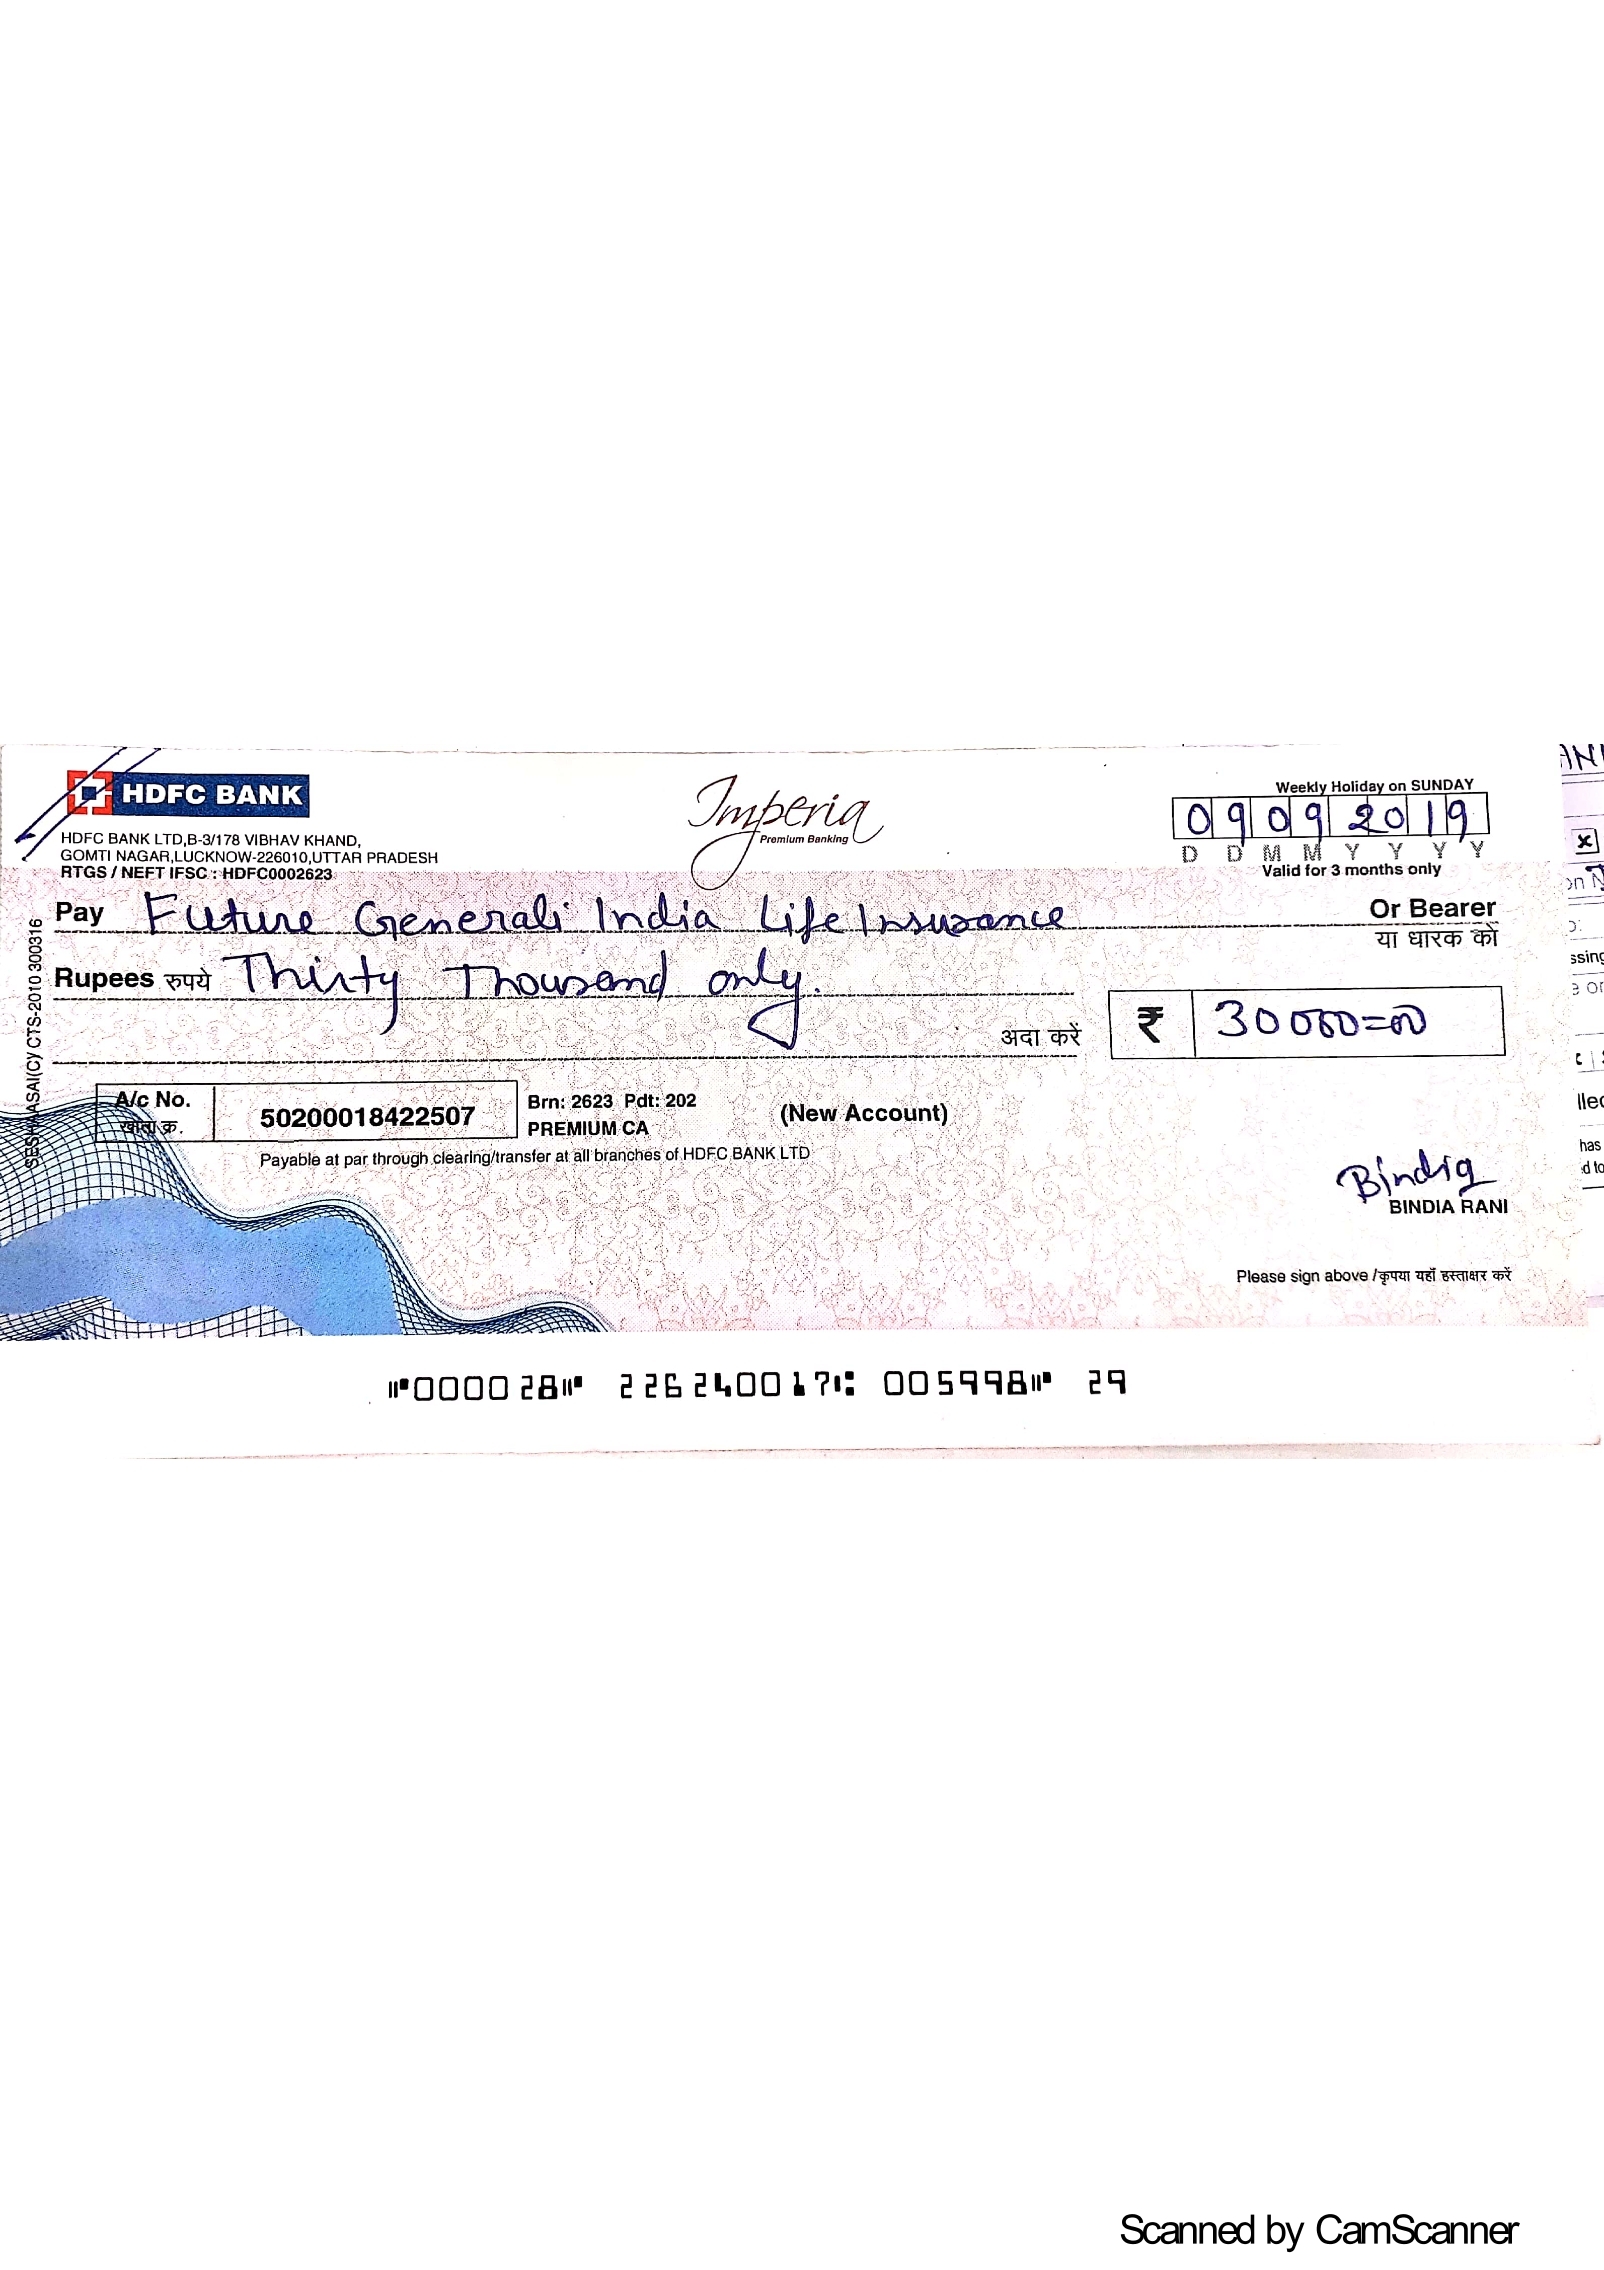 HDFC BANK
HDFC BANK LTD,B-3/178 VIBHAV KHAND,
GOMTI NAGAR,LUCKNOW-226010,UTTAR PRADESH
RTGS / NEFT IFSC : HDFC0002623
Imperia
Premium Banking
Weekly Holiday on SUNDAY
09092019
D D M M Y Y Y Y
Valid for 3 months only
Pay Future Generali India Life Insurance Or Bearer
या धारक को
Rupees रुपये Thirty Thousand only.
अदा करें ₹ 30000=00
A/c No. 50200018422507
खाता क्र.
Brn: 2623 Pdt: 202 (New Account)
PREMIUM CA
Payable at par through clearing/transfer at all branches of HDFC BANK LTD
Bindia
BINDIA RANI
Please sign above /कृपया यहाँ हस्ताक्षर करें
⑈000028⑈ 226240017⑆ 005998⑈ 29
CTS-2010 300316
Scanned by CamScanner